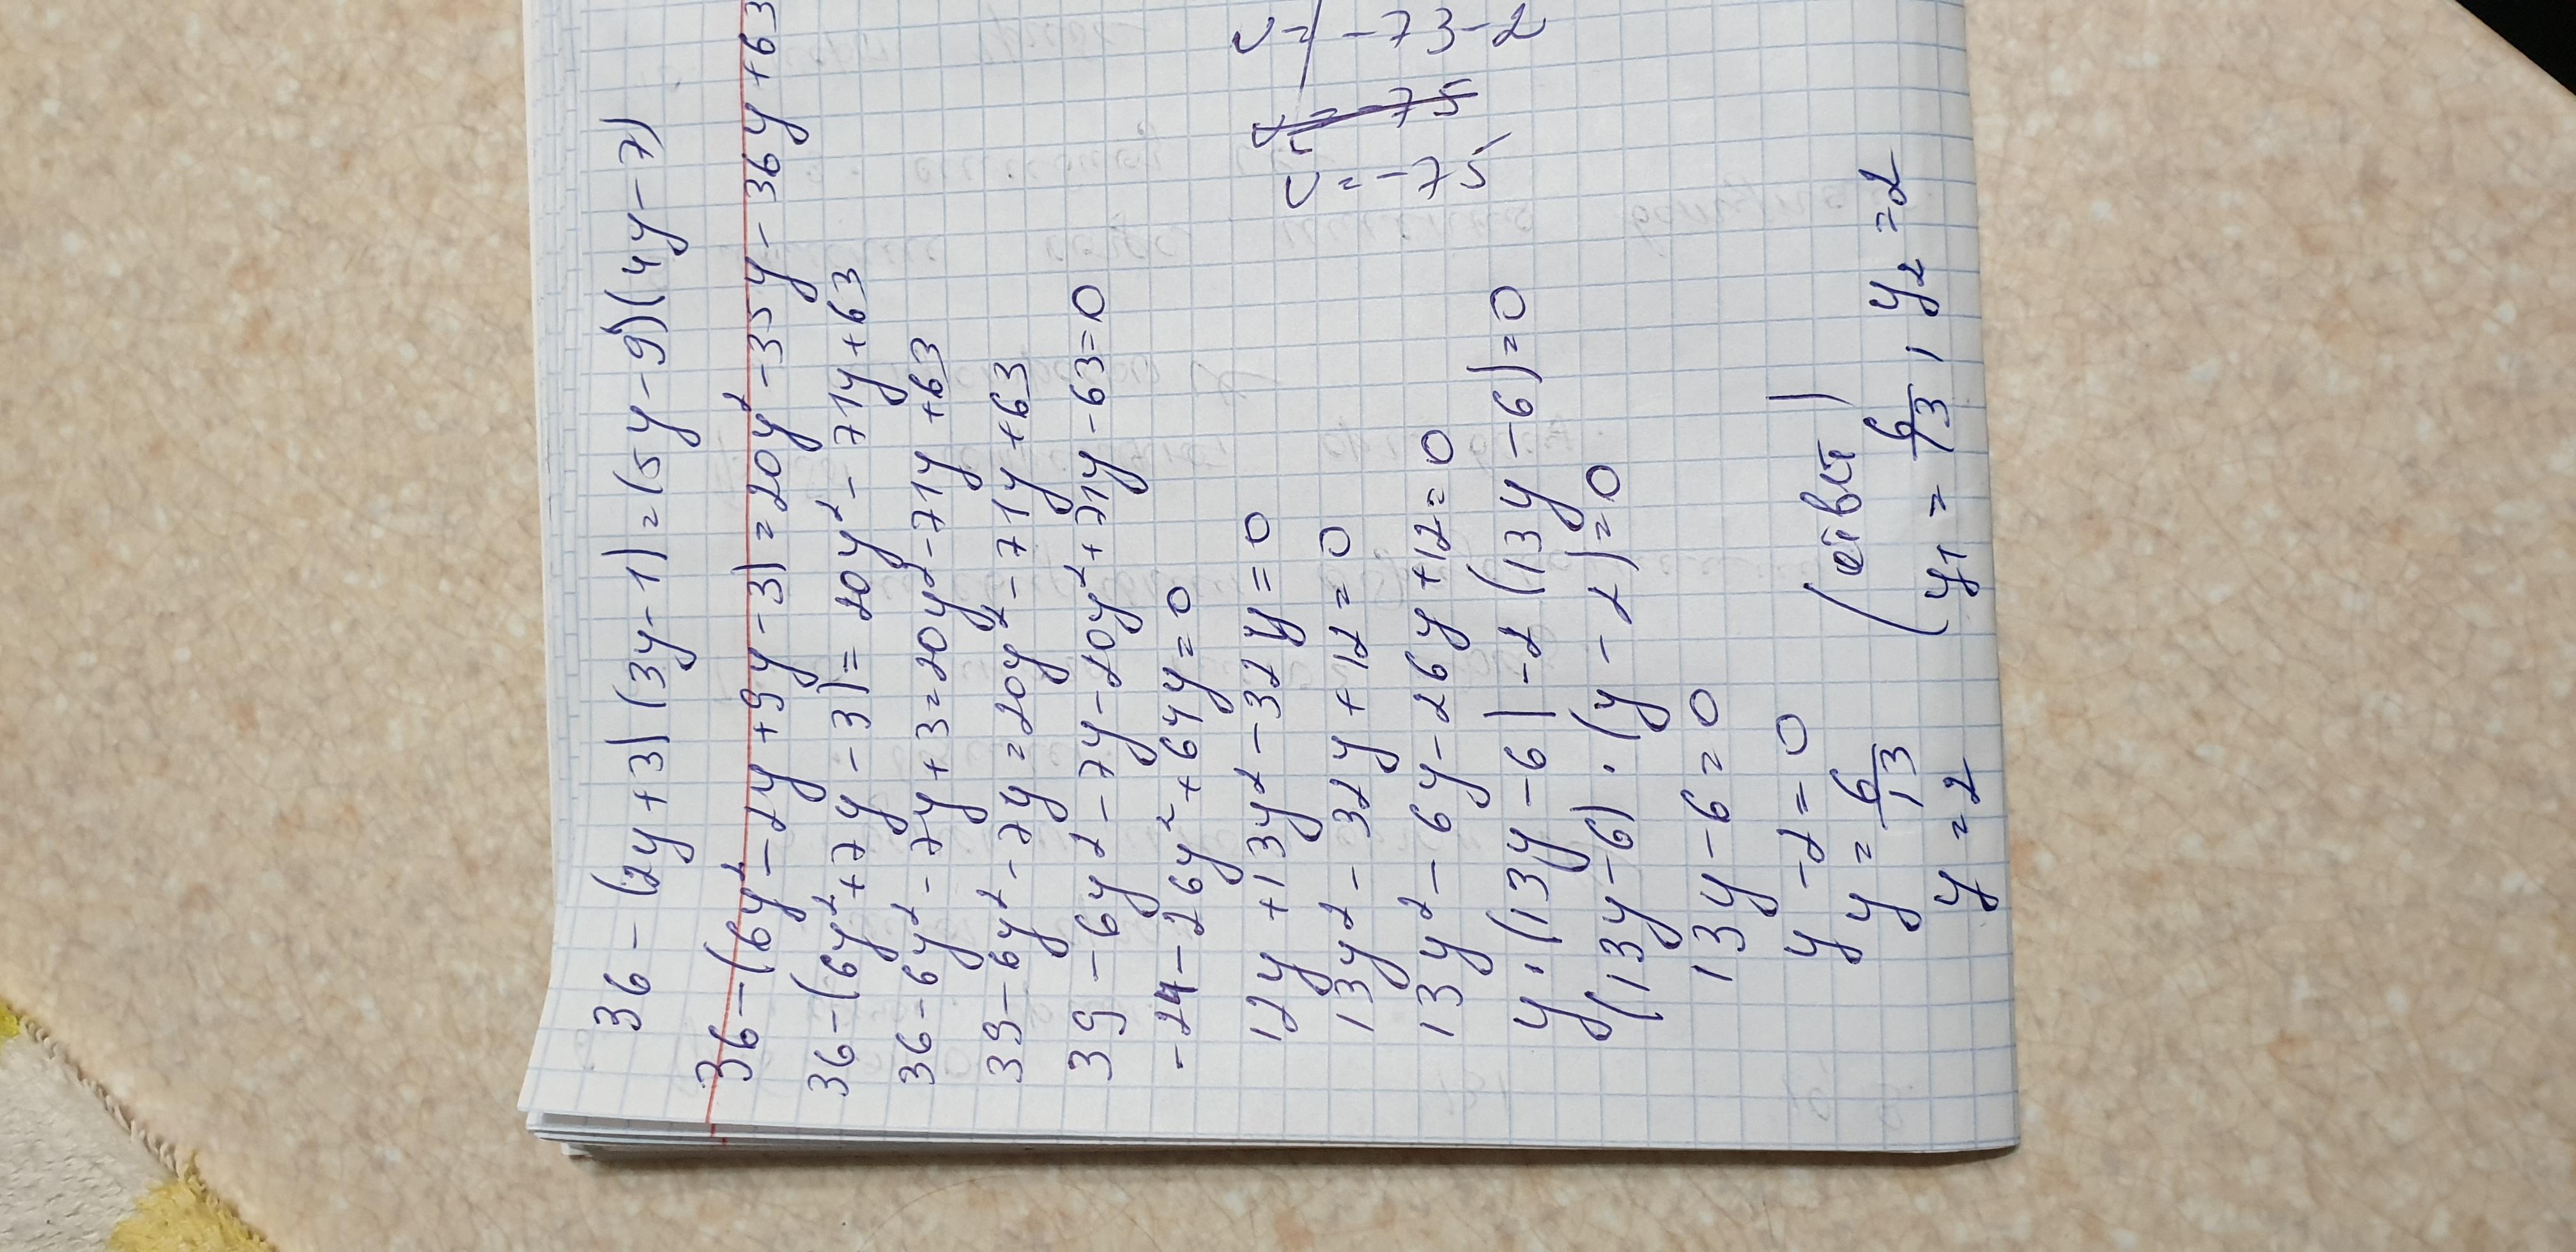 36-(2y+3)(3y-1)=(5y-9)(4y-7)
36-(6y²-2y+9y-3)=20y²-35y-36y+63
36-(6y²+7y-3)=20y²-71y+63
36-6y²-7y+3=20y²-71y+63
39-6y²-7y=20y²-71y+63
39-6y²-7y-20y²+71y-63=0
-24-26y²+64y=0
12y+13y²-32y=0
13y²-32y+12=0
13y²-6y-26y+12=0
y·(13y-6)-2(13y-6)=0
(13y-6)·(y-2)=0
13y-6=0
y-2=0
y=6/13
y=2
y₁=6/13, y₂=2
-73-2
=-75
=-75